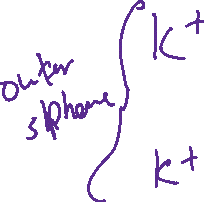 outer
sphere
K+
K+